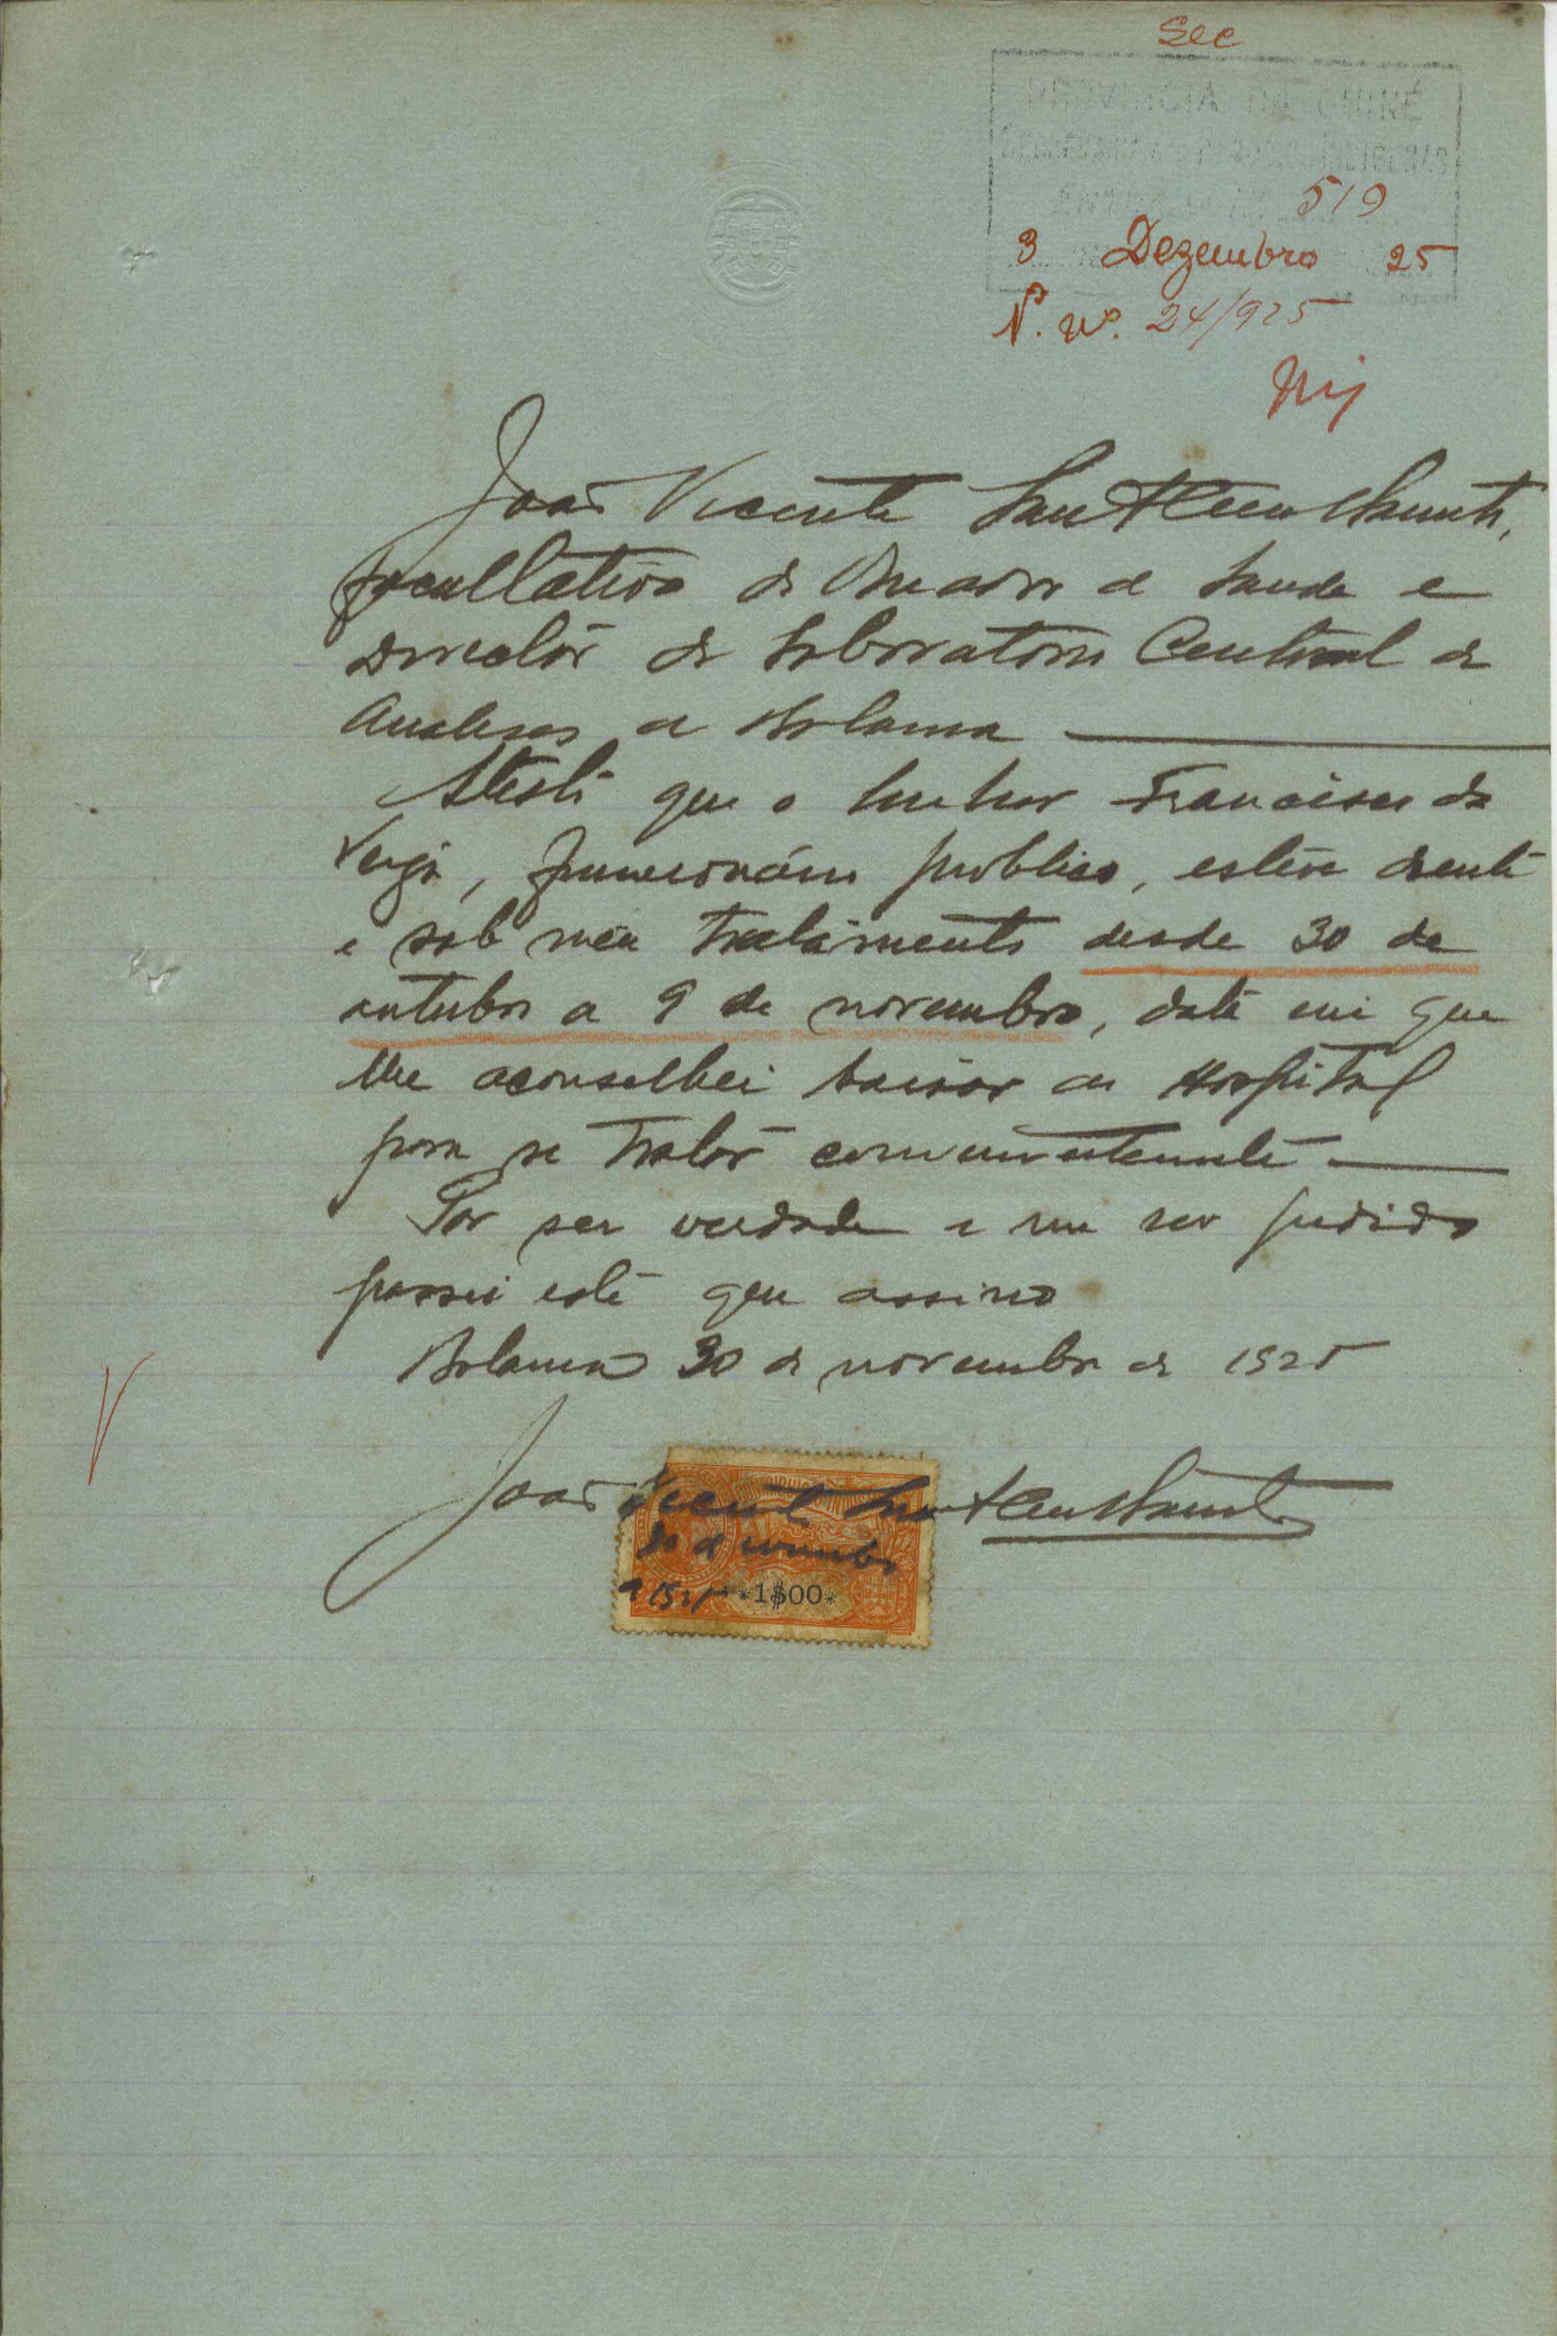 Sec
PROVINCIA DA GUINÉ
519
3 Dezembro 25
24/925
João Vicente Sant'Ana Barreto,
facultativo do Quadro de Saude e
Director do Laboratorio Central de
Analises de Bolama
Atesto que o senhor Francisco da
Veiga, funcionário publico, esteve doente
e sob meu tratamento desde 30 de
outubro a 9 de novembro, data em que
lhe aconselhei baixar ao Hospital
para se tratar convenientemente
Por ser verdade e me ser pedido
passei este que assino
Bolama 30 de novembro de 1925
João Vicente Sant'Ana Barreto
30 de novembro
de 1925 1$00